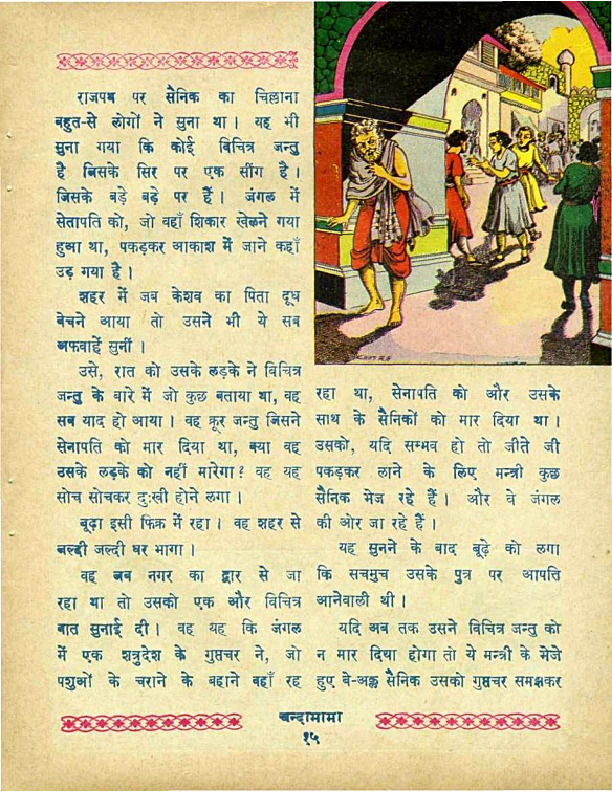 राजपथ पर सैनिक का चिल्लाना
बहुत-से लोगों ने सुना था। यह भी
सुना गया कि कोई विचित्र जन्तु
है जिसके सिर पर एक सींग है।
जिसके बड़े बड़े पर हैं। जंगल में
सेनापति को, जो वहाँ शिकार खेलने गया
हुआ था, पकड़कर आकाश में जाने कहाँ
उड़ गया है।
शहर में जब केशव का पिता दूध
बेचने आया तो उसने भी ये सब
अफवाहें सुनीं।
उसे, रात को उसके लड़के ने विचित्र
जन्तु के बारे में जो कुछ बताया था, वह
सब याद हो आया। वह क्रूर जन्तु जिसने
सेनापति को मार दिया था, क्या वह
उसके लड़के को नहीं मारेगा? वह यह
सोच सोचकर दुःखी होने लगा।
बूढ़ा इसी फ़िक्र में रहा। वह शहर से
जल्दी जल्दी घर भागा।
वह जब नगर का द्वार से जा
रहा था तो उसको एक और विचित्र
बात सुनाई दी। वह यह कि जंगल
में एक शत्रुदेश के गुप्तचर ने, जो
पशुओं के चराने के बहाने वहाँ रह
रहा था, सेनापति को और उसके
साथ के सैनिकों को मार दिया था।
उसको, यदि सम्भव हो तो जीते जी
पकड़कर लाने के लिए मन्त्री कुछ
सैनिक भेज रहे हैं। और वे जंगल
की ओर जा रहे हैं।
यह सुनने के बाद बूढ़े को लगा
कि सचमुच उसके पुत्र पर आपत्ति
आनेवाली थी।
यदि अब तक उसने विचित्र जन्तु को
न मार दिया होगा तो ये मन्त्री के भेजे
हुए बे-अक्ल सैनिक उसको गुप्तचर समझकर
चन्दामामा
१५